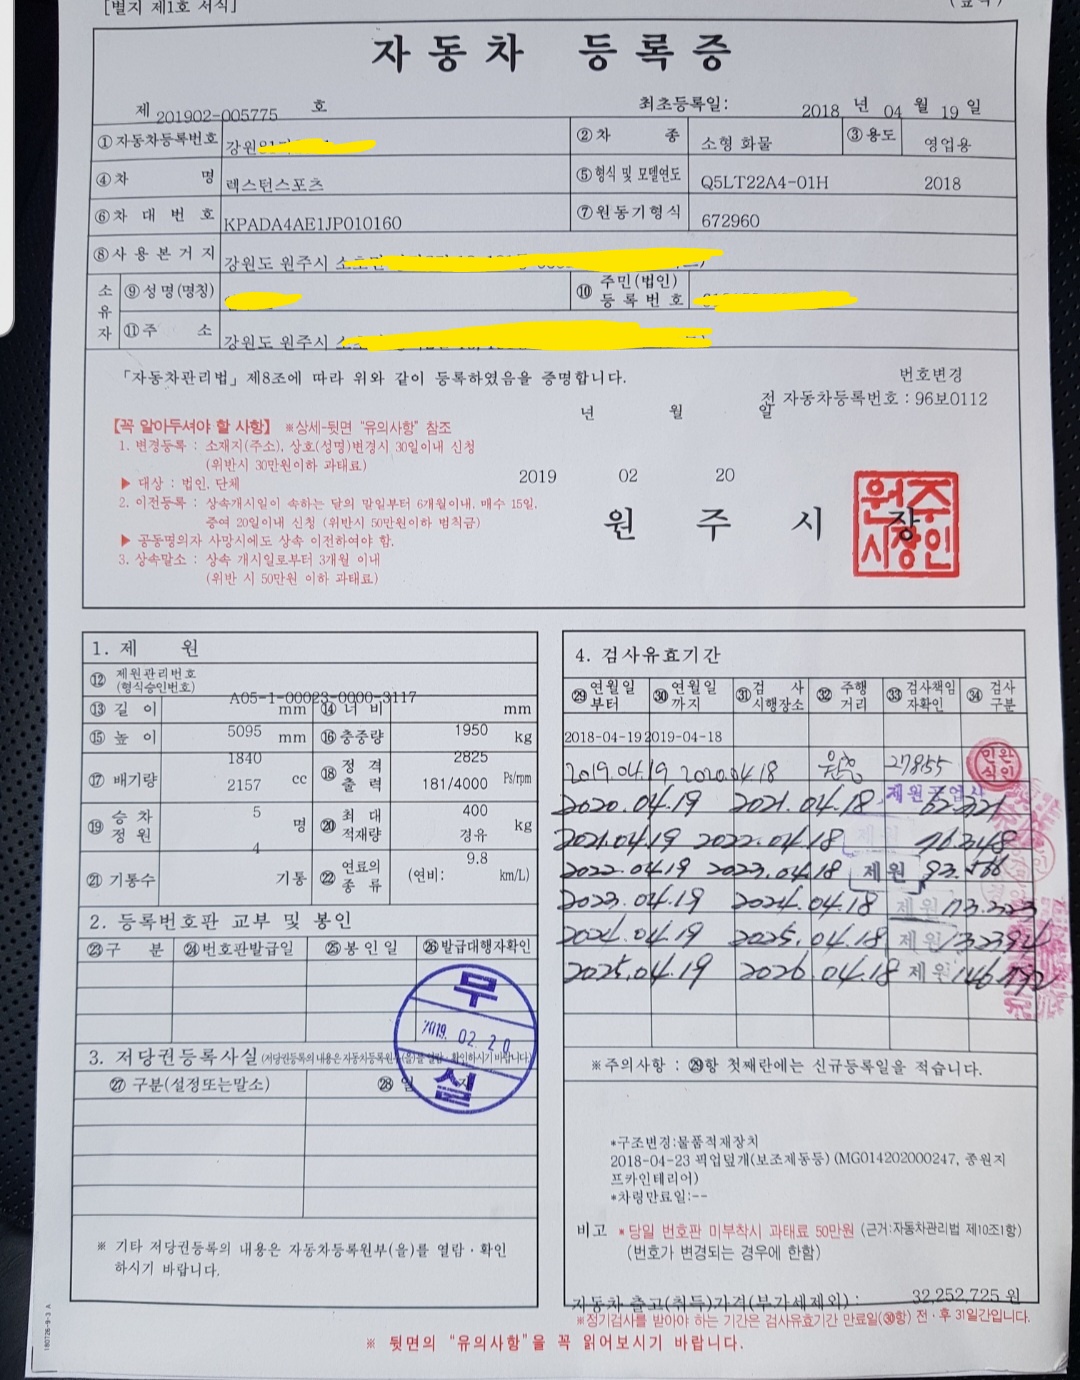 [별지 제1호 서식]
자동차 등록증
제 201902-005775 호 최초등록일: 2018 년 04 월 19 일
①자동차등록번호 강원 ②차 종 소형 화물 ③용도 영업용
④차 명 렉스턴스포츠 ⑤형식 및 모델연도 Q5LT22A4-01H 2018
⑥차 대 번 호 KPADA4AE1JP010160 ⑦원동기형식 672960
⑧사 용 본 거 지 강원도 원주시
소유자 ⑨성명(명칭) ⑩주민(법인)등록번호
⑪주 소 강원도 원주시
「자동차관리법」제8조에 따라 위와 같이 등록하였음을 증명합니다.
번호변경
전 자동차등록번호 : 96보0112
년 월 일
【꼭 알아두셔야 할 사항】 ※상세-뒷면 "유의사항" 참조
1. 변경등록 : 소재지(주소), 상호(성명)변경시 30일이내 신청
(위반시 30만원이하 과태료)
▶ 대상 : 법인, 단체
2019 02 20
2. 이전등록 : 상속개시일이 속하는 달의 말일부터 6개월이내, 매수 15일,
증여 20일이내 신청 (위반시 50만원이하 범칙금)
▶ 공동명의자 사망시에도 상속 이전하여야 함.
3. 상속말소 : 상속 개시일로부터 3개월 이내
(위반 시 50만원 이하 과태료)
원 주 시 장
원주시장인
1. 제 원
⑫ 제원관리번호
(형식승인번호) A05-1-00023-0000-3117
⑬길 이 5095 mm ⑭너 비 1950 mm
⑮높 이 1840 mm ⑯총중량 2825 kg
⑰배기량 2157 cc ⑱정격출력 181/4000 Ps/rpm
⑲승차정원 5 명 ⑳최대적재량 400 kg
㉑기통수 4 기통 ㉒연료의 종류 경유 (연비: 9.8 km/L)
2. 등록번호판 교부 및 봉인
㉓구 분 ㉔번호판발급일 ㉕봉 인 일 ㉖발급대행자확인
무
2019. 02. 20
실
3. 저당권등록사실 (저당권등록의 내용은 자동차등록원부(을)를 열람·확인하시기 바랍니다)
㉗ 구분(설정또는말소) ㉘ 일
※ 기타 저당권등록의 내용은 자동차등록원부(을)를 열람·확인
하시기 바랍니다.
4. 검사유효기간
㉙연월일부터 ㉚연월일까지 ㉛검사시행장소 ㉜주행거리 ㉝검사책임자확인 ㉞검사구분
2018-04-19 2019-04-18
2019.04.19 2020.04.18 27855
2020.04.19 2021.04.18 제원공업사
2021.04.19 2022.04.18 제원 76.348
2022.04.19 2023.04.18 제원 93.566
2023.04.19 2024.04.18 제원
2024.04.19 2025.04.18 제원
2025.04.19 2026.04.18 제원
※주의사항 : ㉙항 첫째란에는 신규등록일을 적습니다.
*구조변경:물품적재장치
2018-04-23 픽업덮개(보조제동등) (MG014202000247, 종원지
프카인테리어)
*차령만료일:--
비고 * 당일 번호판 미부착시 과태료 50만원 (근거:자동차관리법 제10조1항)
(번호가 변경되는 경우에 한함)
자동차 출고(취득)가격(부가세제외) : 32,252,725 원
※정기검사를 받아야 하는 기간은 검사유효기간 만료일(㉚항) 전·후 31일간입니다.
※ 뒷면의 "유의사항"을 꼭 읽어보시기 바랍니다.